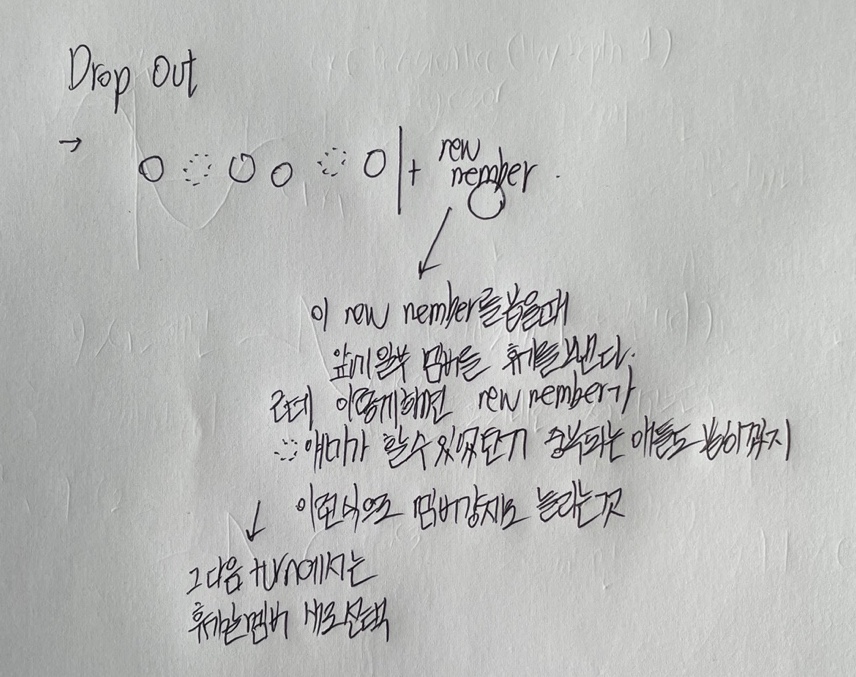 Drop Out
→
+ new
nember
이 new nember를 뽑을때
앞에 일부 멤버를 휴가를 보낸다.
근데 이렇게하면 new nember가
얘네가 할수 있었단거 중복되는 애들도 뽑히겠지
이런식으로 멤버강제로 늘리는것
그다음 turn에서는
휴가갈멤버 새로선택